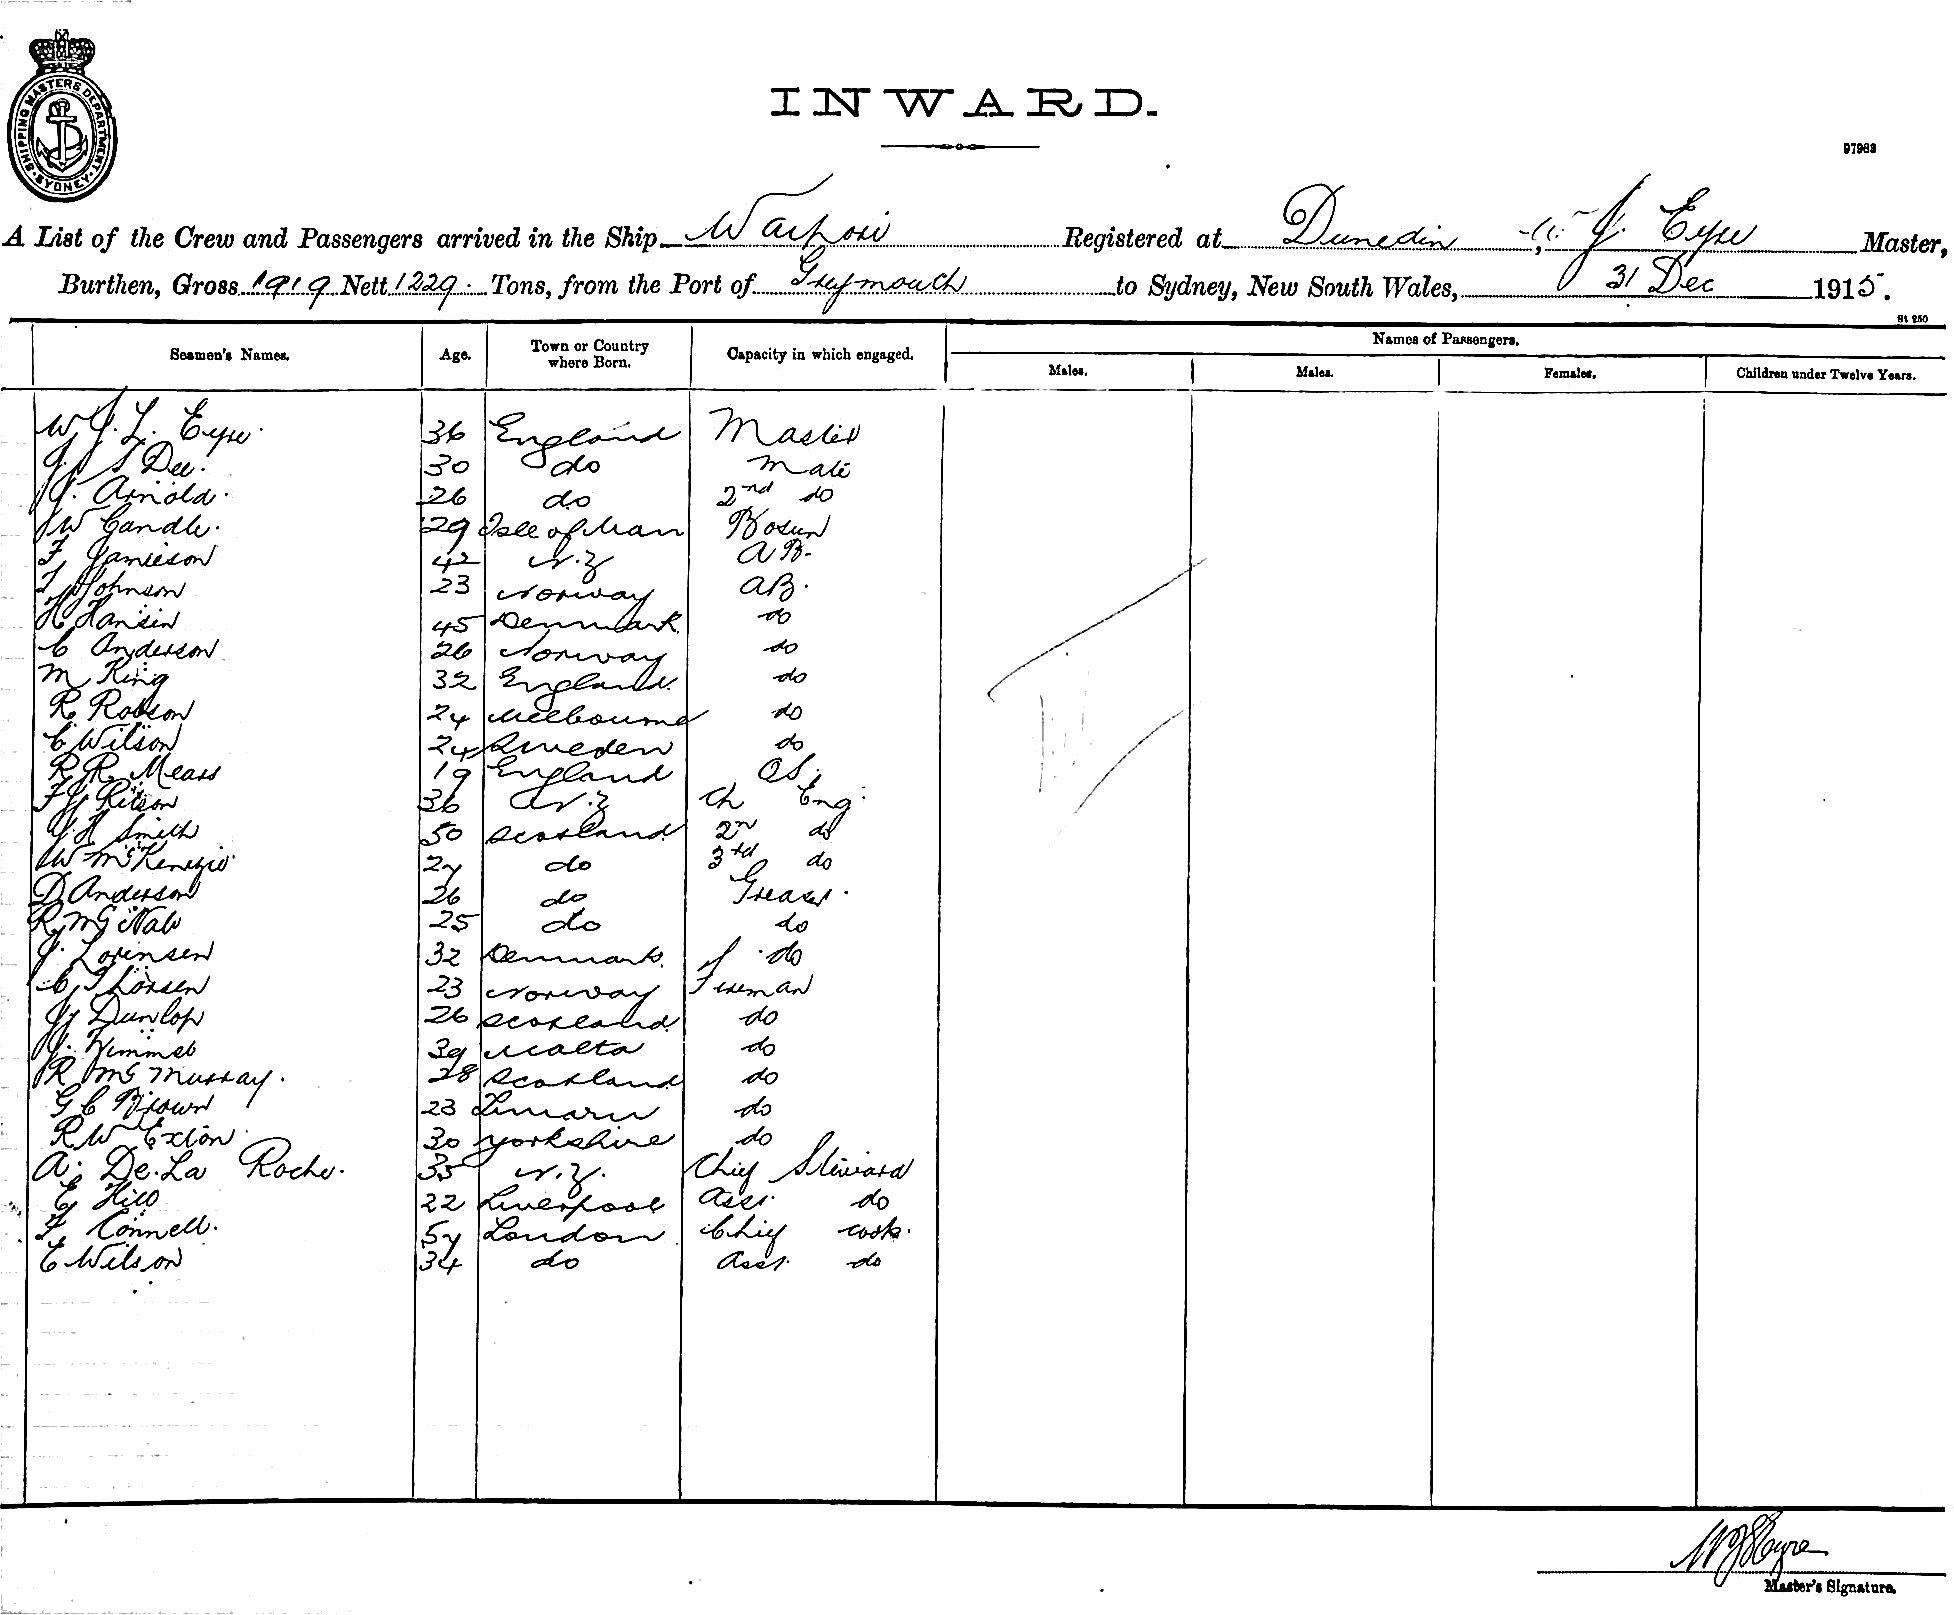 SHIPPING MASTERS DEPARTMENT. SYDNEY.
INWARD.
97983
A List of the Crew and Passengers arrived in the Ship Waipori Registered at Dunedin, W. J. Eyre Master,
Burthen, Gross 1919 Nett 1229. Tons, from the Port of Greymouth to Sydney, New South Wales, 31 Dec 1915.
St 250
Seamen's Names. Age. Town or Country where Born. Capacity in which engaged. Names of Passengers.
Males. Males. Females. Children under Twelve Years.
W. J. L. Eyre. 36 England Master
S Dee. 30 do Mate
J. Arnold. 26 do 2nd do
W Candle. 29 Isle of Man Bosun
F Jamieson 42 N.Z AB.
Johnson 23 Norway AB.
H Hansen 45 Denmark do
C Anderson 26 Norway do
M King 32 England do
R Robson 24 Melbourne do
C Wilson 24 Sweden do
R R Mears 19 England OS,
F J Ritson 36 N.Z Ch Eng.
J. H Smith 50 Scotland 2n do
W McKenzie 27 do 3rd do
D Anderson 26 do Greaser.
R McNab 25 do do
J. Lorensen 32 Denmark do
C Thorsen 23 Norway Fireman
J Dunlop 26 Scotland do
J. 39 Malta do
R McMurray. 28 Scotland do
G C Brown 23 Timaru do
R W Exton. 30 Yorkshire do
A. De. La Roche. 35 N.Z. Chief Steward
E Hill 22 Liverpool Asst. do
F Connell. 57 London Chief cook.
E Wilson 34 do Asst. do
W J L Eyre
Master's Signature.